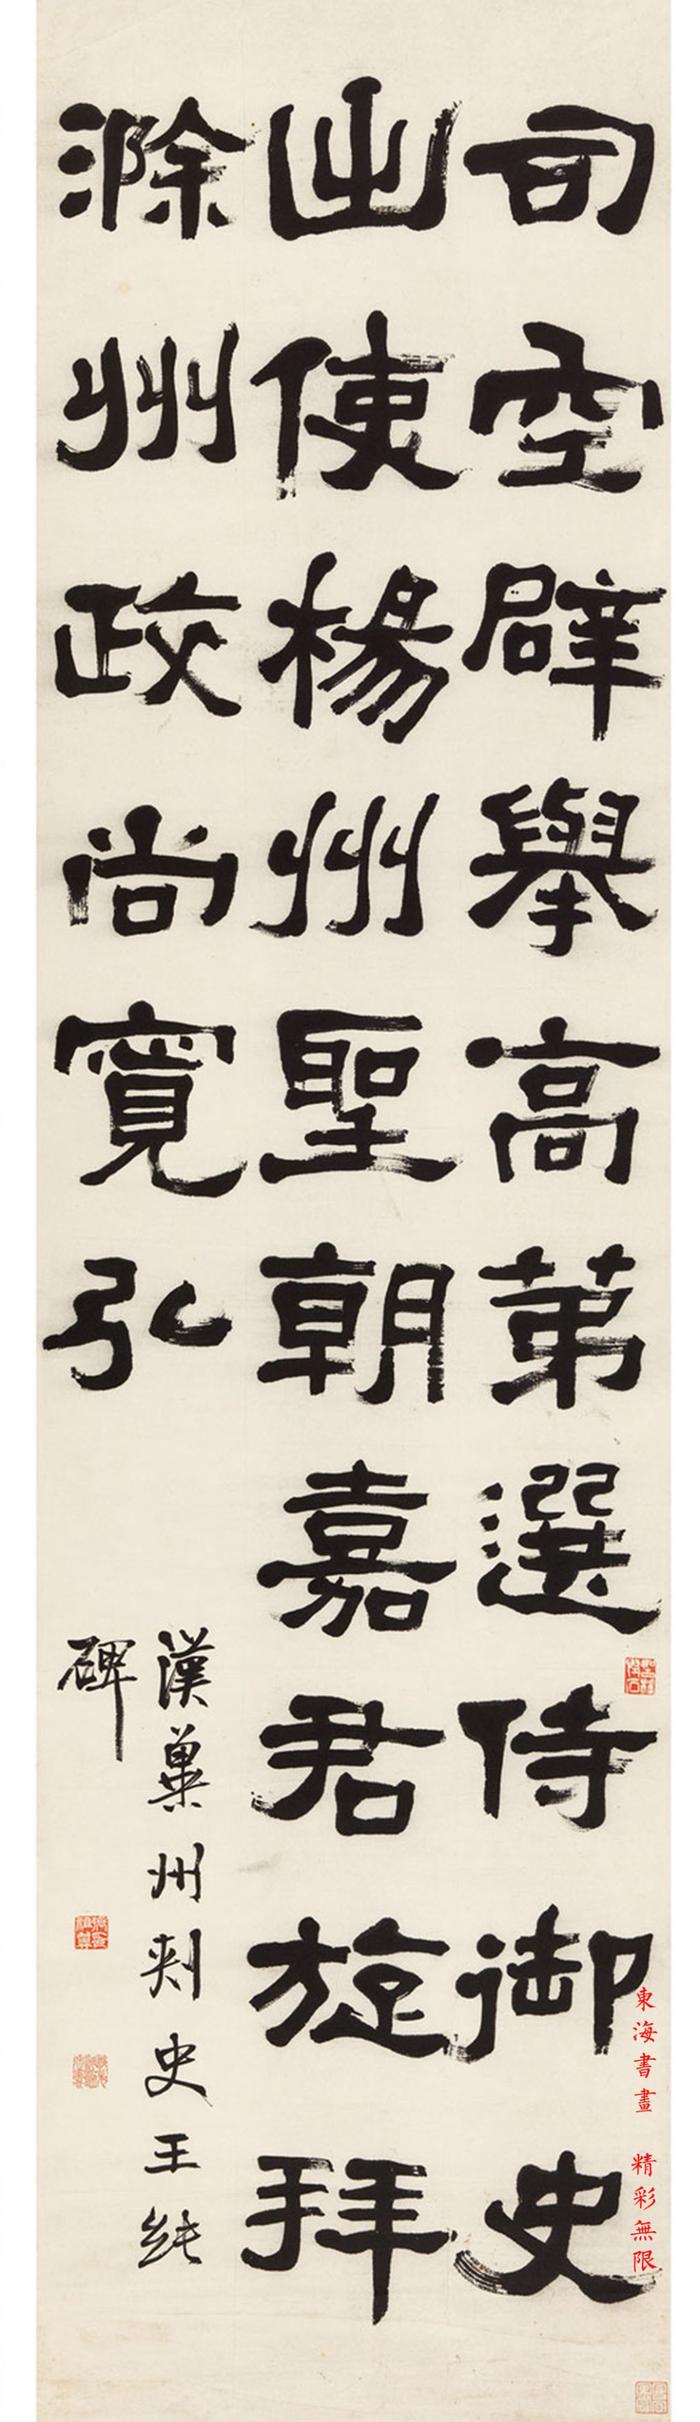 司空辟舉高第選侍御史
出使楊州聖朝嘉君旋拜
滁州政尚寬弘
漢冀州刺史王純
碑
東海書畫 精彩無限